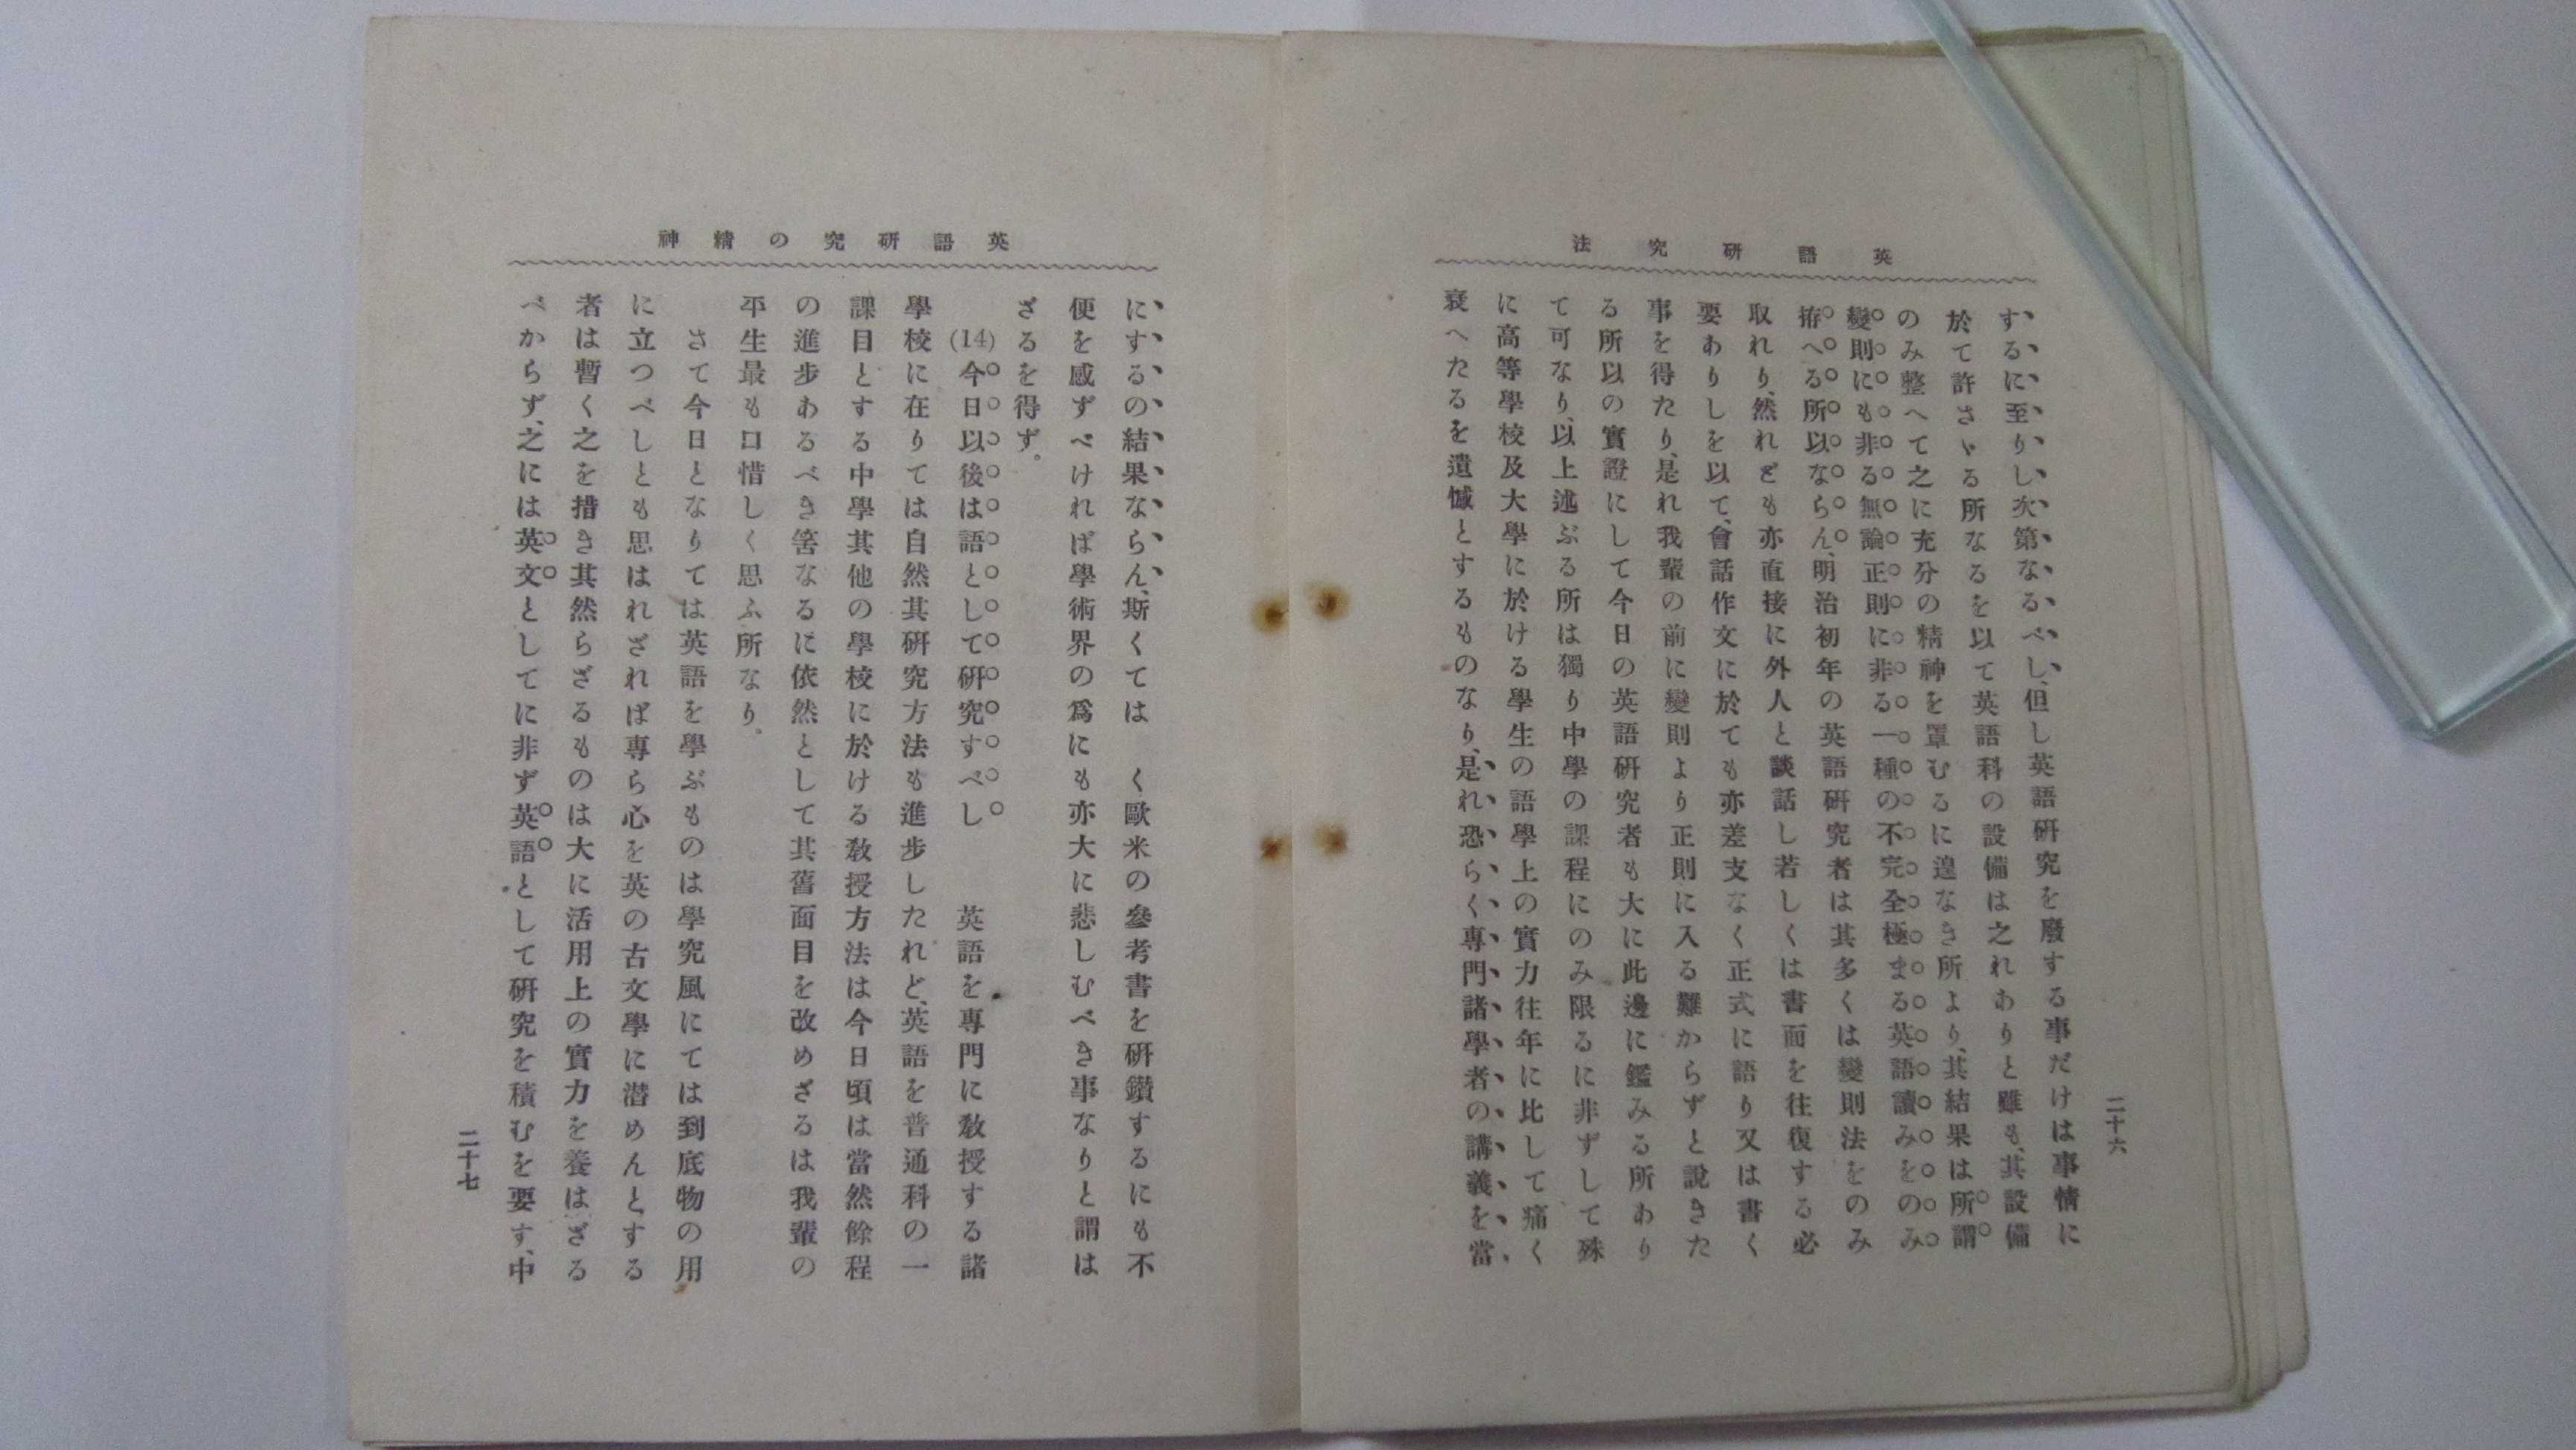 英語研究法
するに至りし次第なるべし、但し英語研究を廢する事だけは事情に
於て許さゝる所なるを以て英語科の設備は之れありと雖も、其設備
のみ整へて之に充分の精神を罩むるに遑なき所より、其結果は所謂
變則にも非る無論正則に非る一種の不完全極まる英語讀みをのみ
拵へる所以ならん、明治初年の英語研究者は其多くは變則法をのみ
取れり、然れども亦直接に外人と談話し若しくは書面を往復する必
要ありしを以て、會話作文に於ても亦差支なく正式に語り又は書く
事を得たり、是れ我輩の前に變則より正則に入る難からずと說きた
る所以の實證にして今日の英語研究者も大に此邊に鑑みる所あり
て可なり、以上述ぶる所は獨り中學の課程にのみ限るに非ずして殊
に高等學校及大學に於ける學生の語學上の實力往年に比して痛く
衰へたるを遺憾とするものなり、是れ恐らく專門諸學者の講義を當
二十六
英語研究の精神
にするの結果ならん、斯くては く歐米の參考書を研鑽するにも不
便を感ずべければ學術界の爲にも亦大に悲しむべき事なりと謂は
ざるを得ず。
(14)今日以後は語として研究すべし 英語を專門に敎授する諸
學校に在りては自然其研究方法も進步したれど、英語を普通科の一
課目とする中學其他の學校に於ける敎授方法は今日頃は當然餘程
の進步あるべき筈なるに依然として其舊面目を改めざるは我輩の
平生最も口惜しく思ふ所なり。
さて今日となりては英語を學ぶものは學究風にては到底物の用
に立つべしとも思はれざれば專ら心を英の古文學に潜めんとする
者は暫く之を措き其然らざるものは大に活用上の實力を養はざる
べからず、之には英文としてに非ず英語として研究を積むを要す、中
二十七